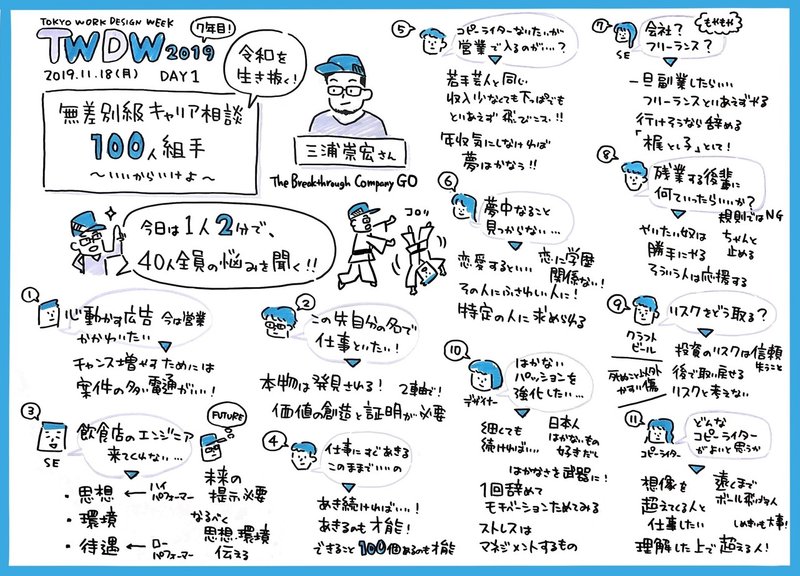 TOKYO WORK DESIGN WEEK
7年目!
TWDW2019
2019.11.18(月) DAY1
令和を
生き抜く!
無差別級キャリア相談
100人組手
〜いいからいけよ〜
三浦崇宏さん
The Breakthrough Company GO
今日は1人2分で、
40人全員の悩みを聞く!!
コロリ
①
心動かす広告 今は営業
かかわりたい
チャンス増やすためには
案件の多い電通がいい!
②
この先自分の名で
仕事したい!
本物は発見される! 2軸で!
価値の創造と証明が必要
③
SE
飲食店のエンジニア
来てくれない…
FUTURE
・思想 ← ハイパフォーマー
・環境
・待遇 ← ローパフォーマー
未来の
提示必要
なるべく
思想・環境
伝える
④
仕事にすぐあきる
このままでいいの
あき続ければいい…!
あきるのも才能!
できること100個あるのも才能
⑤
コピーライターなりたいが
営業で入るのが…?
若手芸人と同じ
収入少なくても下っぱでも
とりあえず飛びこえ!!
年収気にしなければ
夢はかなう!!
⑥
夢中なること
見つからない…
恋愛するといい 恋に学歴
関係ない!
その人にふさわしい人に!
特定の人に求められる
⑦
SE
会社?
フリーランス?
もやもや
一旦副業したらいい
フリーランスとりあえずやる
行けそうなら辞める
「梶としろ」とて!
⑧
残業する後輩に
何ていったらいいか?
規則ではNG
やりたい奴は
勝手にやる
ちゃんと
止める
そういう人は応援する
⑨
クラフト
ビール
リスクをどう取る?
死ぬこと以外
かすり傷
投資のリスクは信頼
失うこと
後で取り戻せる
リスクと考えない
⑩
デザイナー
はかない
パッションを
強化したい…
細くても
続ければいい…
日本人
はかないもの
好きだし
はかなさを武器に!
1回辞めて
モチベーションためてみる
ストレスは
マネジメントするもの
⑪
コピーライター
どんな
コピーライター
がよいと思うか
想像を
超えてく人と
仕事したい
遠くまで
ボール飛ばす人
しめきりも大事!
理解した上で超える人!